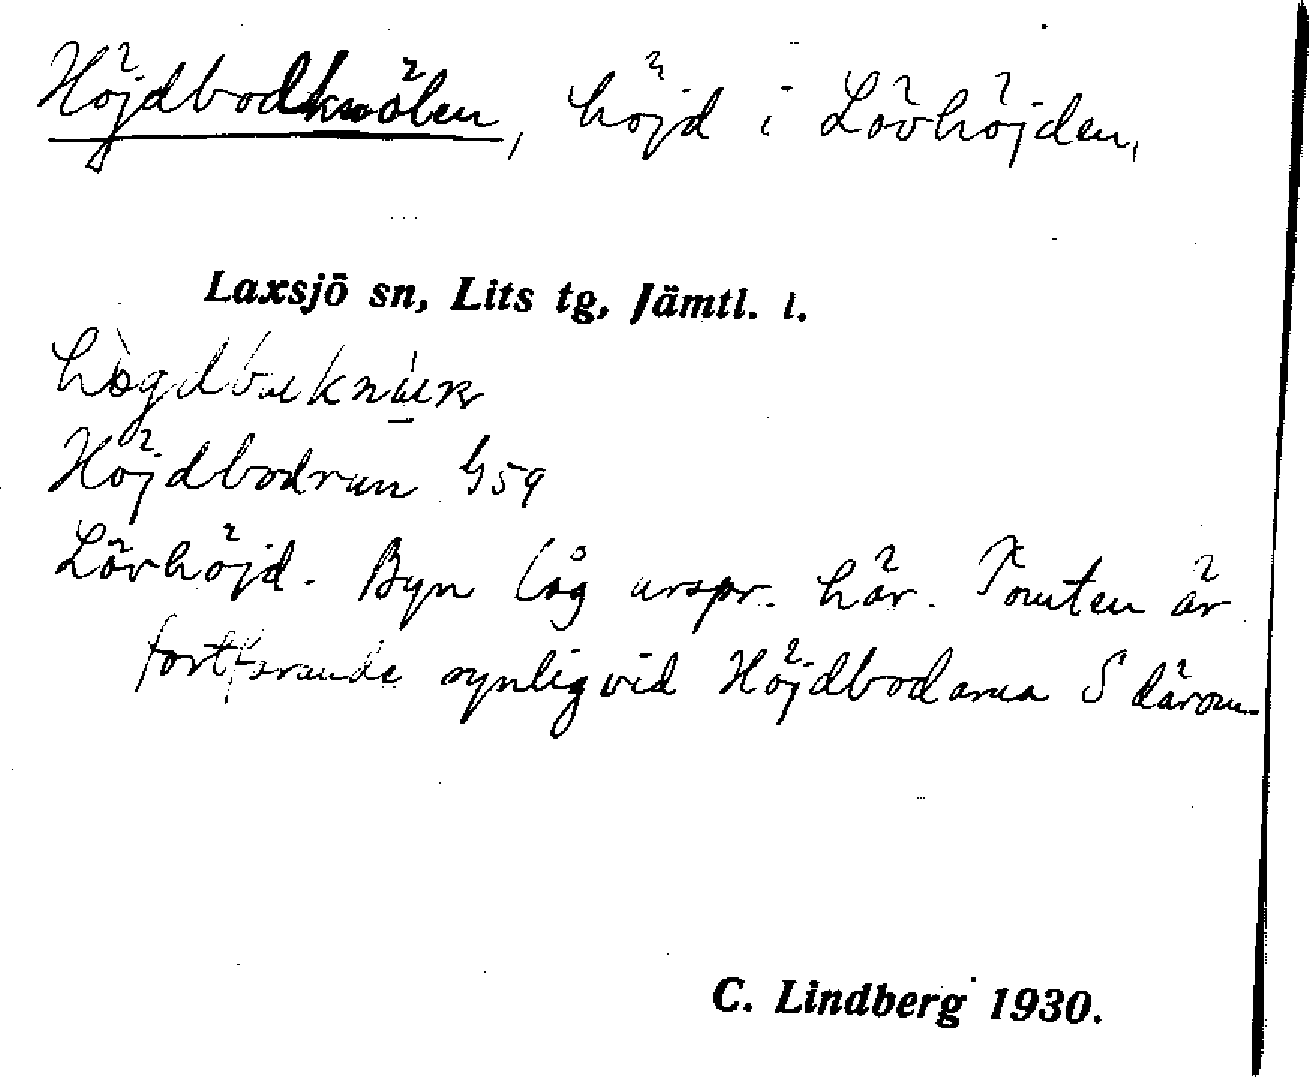 Höjdbodknölen, höjd i Lövhöjden,
Laxsjö sn, Lits tg, Jämtl. l.
Höjdbodrun G59
Lövhöjd. Byn låg urspr. här. Tomten är
fortfarande synlig vid Höjdbodarna S därom.
C. Lindberg 1930.